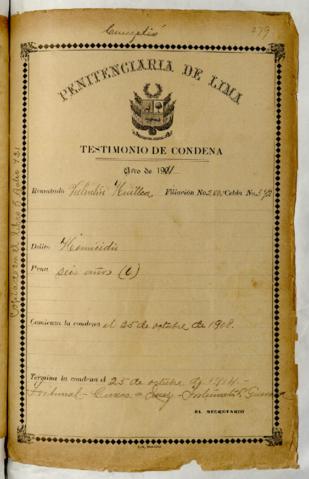 Cumplió
279
PENITENCIARIA DE LIMA
TESTIMONIO DE CONDENA
Año de 1911
Rematado Valentin Huillca Filiación No. Celda No.
Delito Homicidio
Pena seis años (6)
Comienza la condena el 25 de octubre de 1908.
Termina la condena el 25 de octubre de 1914.-
Tribunal - Cuzco - Juez - Fortunato
EL SECRETARIO